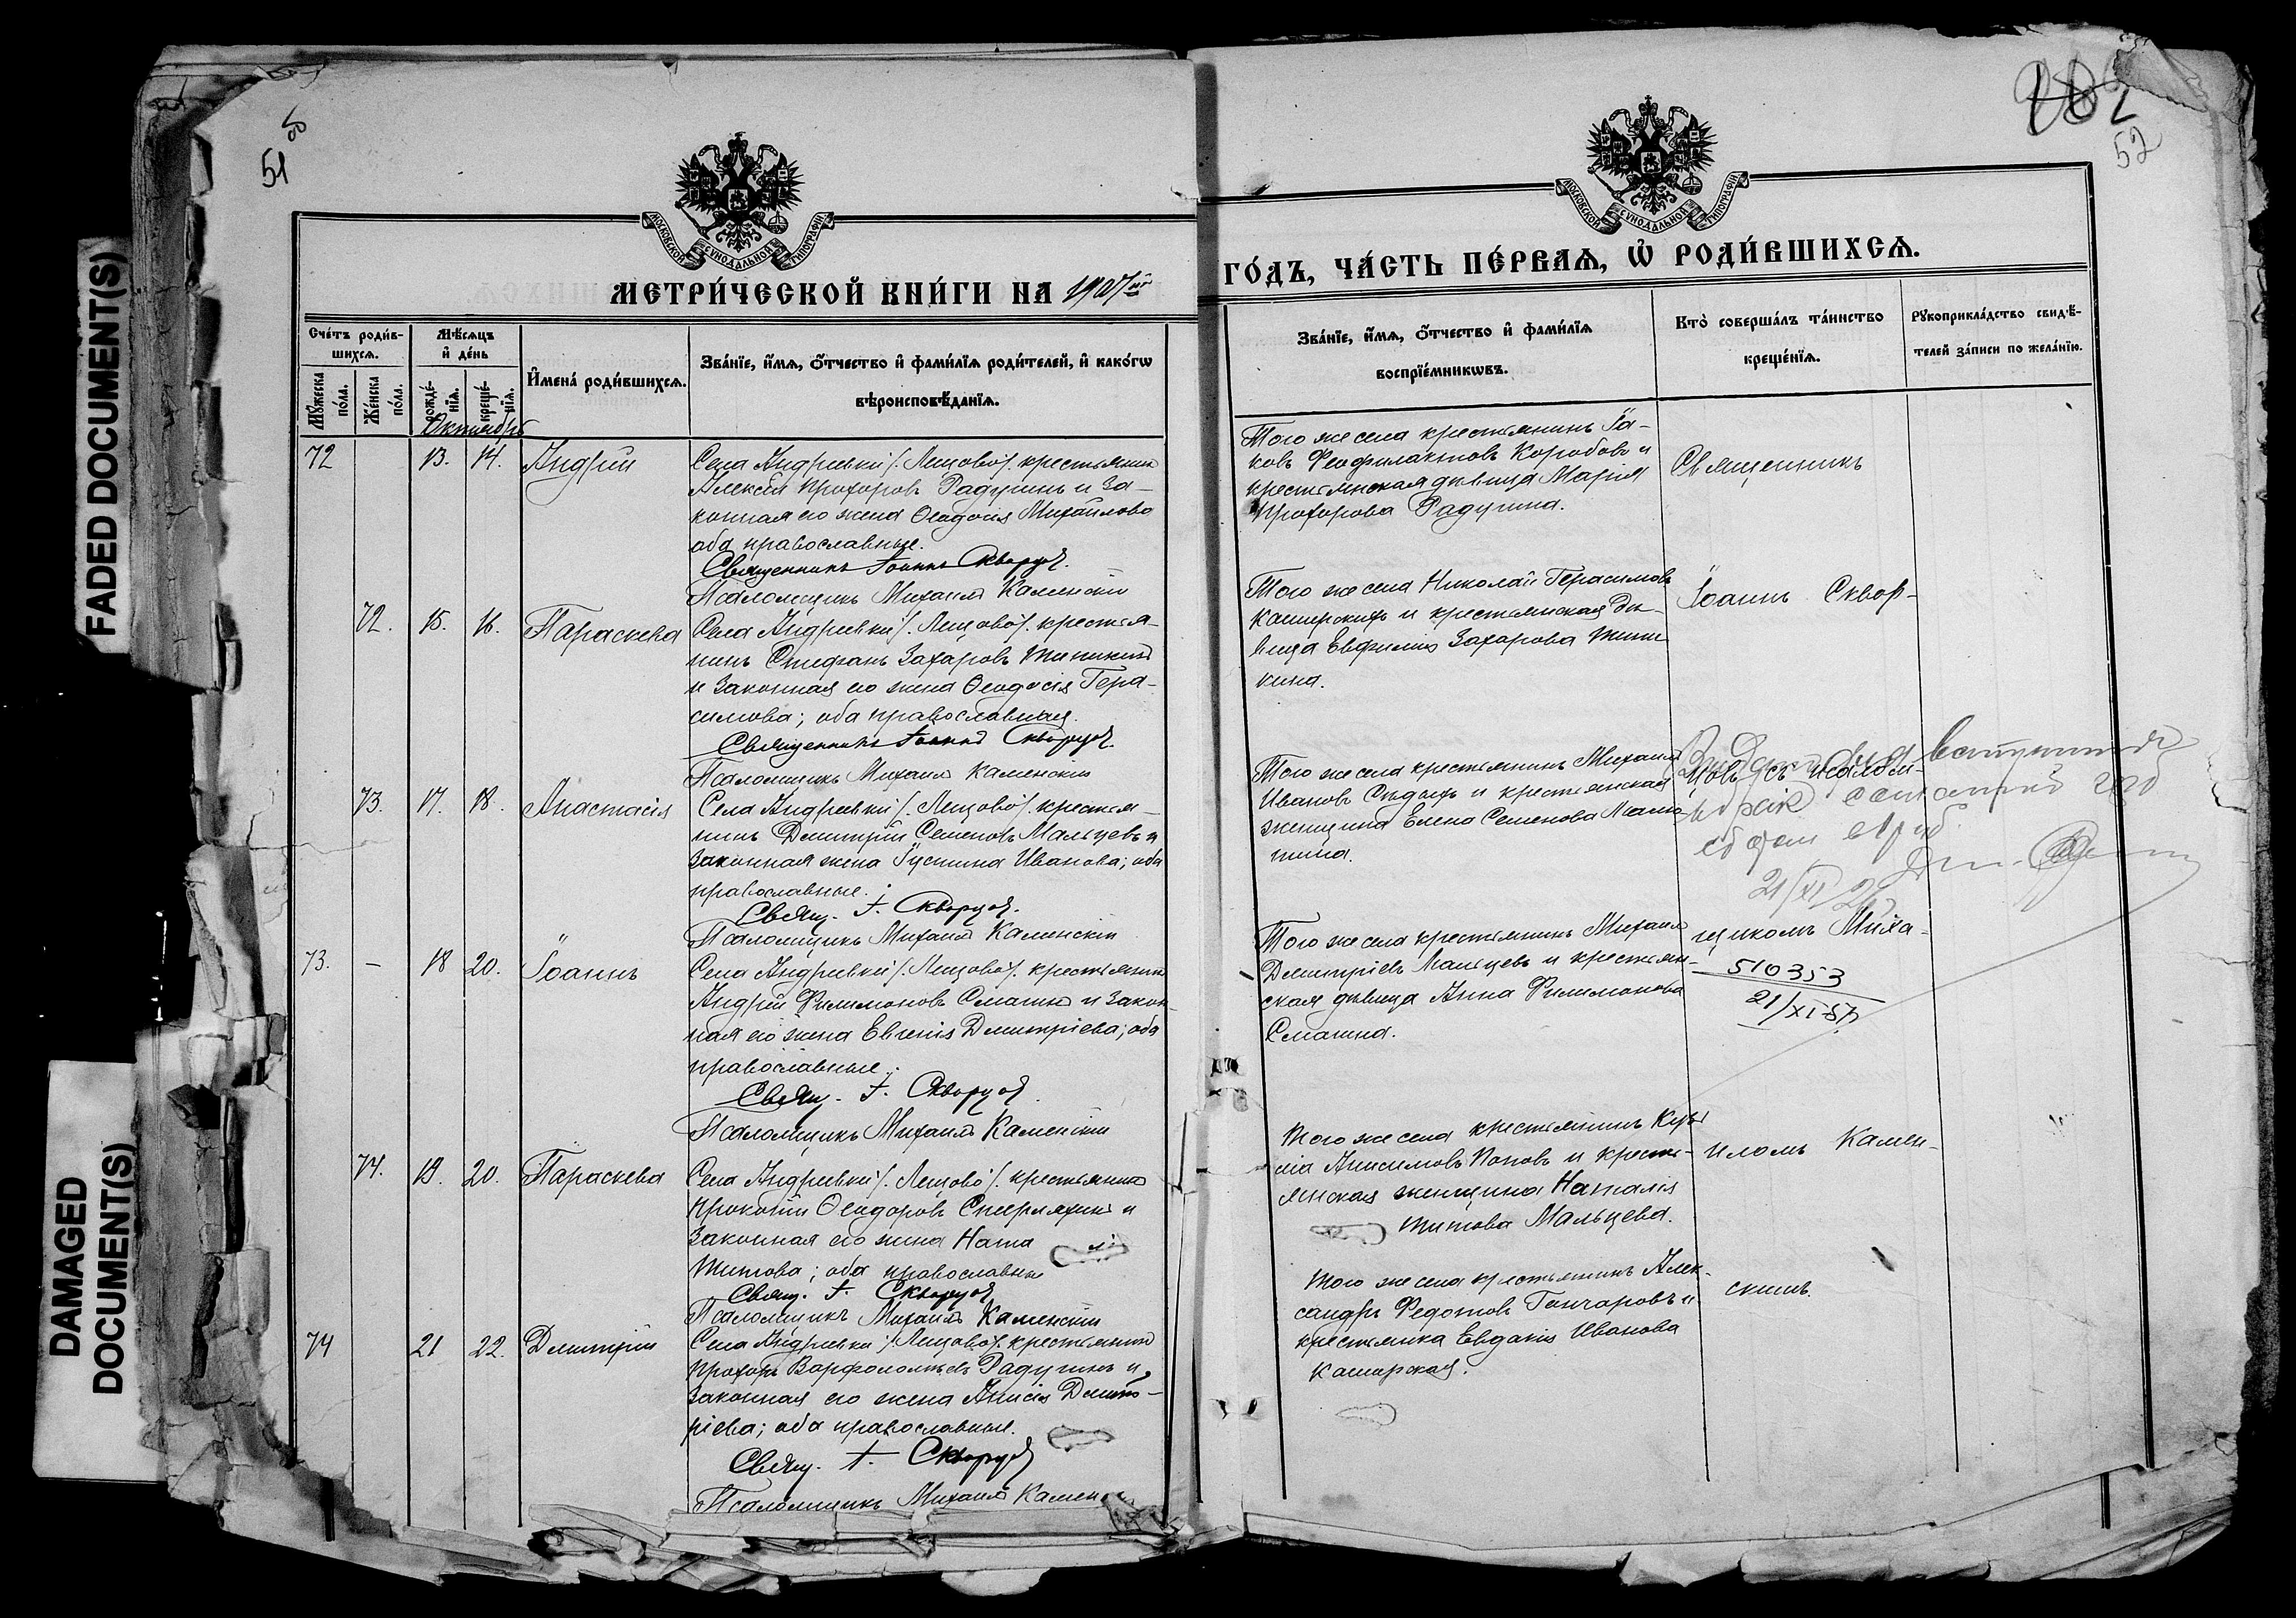 51 об
МОСКОВСКОЙ СѴНОДАЛЬНОЙ ТИПОГРАФІИ
МЕТРИ́ЧЕСКОЙ КНИ́ГИ НА 1907й
Сче́тъ роди́в-
шихсѧ.
Мѣ́сѧцъ
и҆ де́нь
И҆мена̀ роди́вшихсѧ.
Зва́нїе, и҆́мѧ, ѻ҆́тчество и҆ фами́лїѧ роди́телей, и҆ како́гѡ
вѣроисповѣ́данїѧ.
Мꙋ́жеска
по́ла.
Же́нска
по́ла.
рожде́-
нїѧ.
креще́-
нїѧ.
Октябрь
72 13. 14. Андрей
Села Андреевки /. Лещово /. крестьянин
Алексей Прохоровъ Радушинъ и за-
конная его жена Ѳеодосія Михайлова
оба православные.
Священникъ Іоаннъ Скворцов.
Псаломщикъ Михаилъ Каменскій
72. 15. 16. Параскева
Села Андреевки /. Лещово /. крестья-
нинъ Стефанъ Захаровъ
и законная его жена Ѳеодосія Гера-
симова; оба православныя.
Священникъ Іоаннъ Скворцов.
Псаломщикъ Михаилъ Каменскій
73. 17. 18. Анастасія
Села Андреевки /. Лещово /. крестья-
нинъ Дмитрій Семеновъ Мальцевъ и
законная жена Іустина Иванова; оба
православные.
Свящ. І. Скворцов.
Псаломщикъ Михаилъ Каменскій
73. – 18 20. Іоаннъ
Села Андреевки /. Лещово /. крестьянинъ
Андрей Филимоновъ Смагинъ и закон-
ная его жена Евгенія Дмитріева; оба
православные.
Свящ. І. Скворцов.
Псаломщикъ Михаилъ Каменскій
74. 19. 20. Параскева
Села Андреевки /. Лещово /. крестьянинъ
Прокопій Ѳеодоровъ и
законная его жена Ната
Титова; оба православные
Свящ. І. Скворцов
Псаломщикъ Михаилъ Каменскій
74 21 22. Дмитрій
Села Андреевки /. Лещово /. крестьянинъ
Прохоръ Варфоломѣевъ Радушинъ и
законная его жена Анисія Дмит-
ріева; оба православные.
Свящ. І. Скворцов
Псаломщикъ Михаилъ Камен
52
МОСКОВСКОЙ СѴНОДАЛЬНОЙ ТИПОГРАФІИ
ГО́ДЪ, ЧА́СТЬ ПЕ́РВАѦ, Ѡ҆ РОДИ́ВШИХСѦ.
Зва́нїе, и҆́мѧ, ѻ҆́тчество и҆ фами́лїѧ
воспрїе́мникѡвъ.
Кто̀ соверша́лъ та́инство
креще́нїѧ.
Рꙋкоприкла́дство свидѣ́-
телей за́писи по жела́нїю.
Того же села крестьянинъ Іа-
ковъ Феофилактовъ Коробовъ и
крестьянская дѣвица Марія
Прохорова Радушина.
Священникъ
Того же села Николай Герасимовъ
Каширскихъ и крестьянская дѣ-
вица Евфимія Захарова
кина.
Іоаннъ Сквор-
Того же села крестьянинъ Михаилъ
Ивановъ Сѣдыхъ и крестьянская
женщина Елена Семенова
цовъ съ псалом-
21/XI
Того же села крестьянинъ Михаилъ
Дмитріевъ Мальцевъ и крестьян-
ская дѣвица Анна Филимонова
Смагина.
щикомъ Миха-
510353
21/XI-57
Того же села крестьянинъ
Анисимовъ Поповъ и кресть-
янская женщина Наталія
Титова Мальцева.
иломъ Камен-
Того же села крестьянинъ Алек-
сандръ Федотовъ Гончаровъ и
крестьянка Евдокія Иванова
Каширская.
скимъ.
FADED DOCUMENT(S)
DAMAGED
DOCUMENT(S)